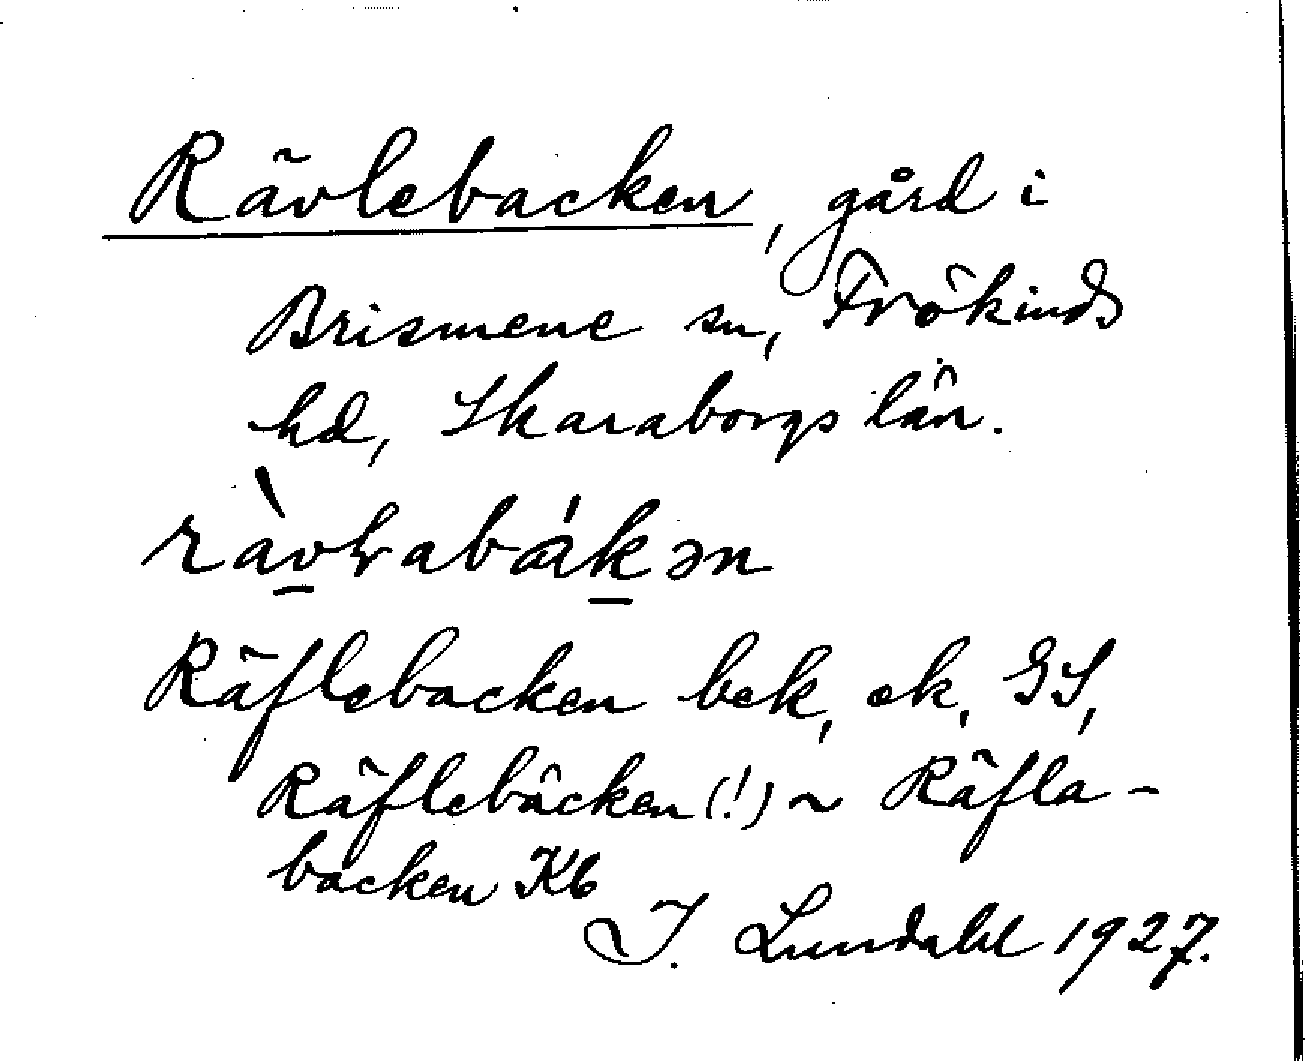 Rävlebacken, gård i
Brismene sn, Frökinds
hd, Skaraborgs län.
Räflebacken bek, ek, GS,
Räflebäcken (!) ~ Räfla-
backen Kb
I. Lundahl 1927.